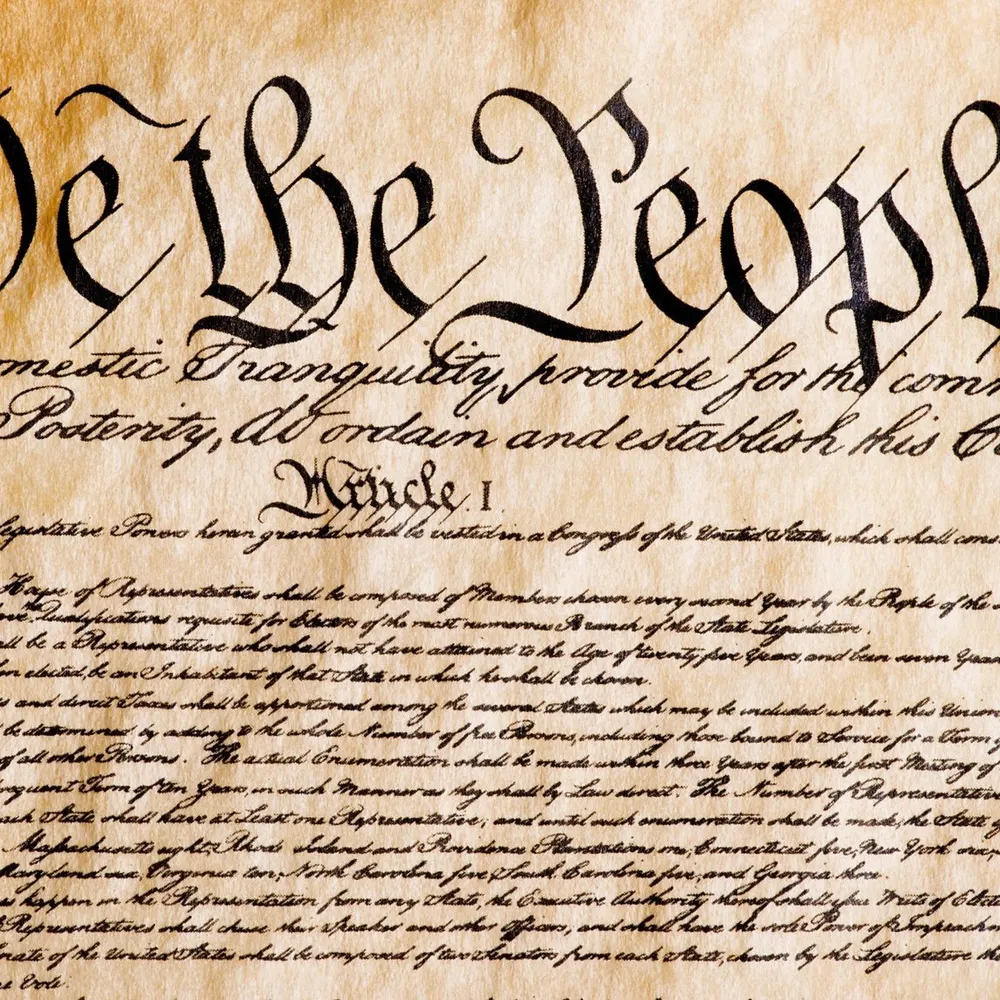 We the People
omestic Tranquility, provide for the com
Posterity, do ordain and establish this Co
Article. I.
legislative Powers herein granted shall be vested in a Congress of the United States, which shall cons
House of Representatives shall be composed of Members chosen every second Year by the People of the
the Qualifications requisite for Electors of the most numerous Branch of the State Legislature.
all be a Representative who shall not have attained to the Age of twenty five Years, and been seven Years
en elected, be an Inhabitant of that State in which he shall be chosen.
s and direct Taxes shall be apportioned among the several States which may be included within this Union
be determined by adding to the whole Number of free Persons, including those bound to Service for a Term of
of all other Persons. The actual Enumeration shall be made within three Years after the first Meeting of
sequent Term of ten Years, in such Manner as they shall by Law direct. The Number of Representatives
ach State shall have at Least one Representative; and until such enumeration shall be made, the State of
Massachusetts eight, Rhode Island and Providence Plantations one, Connecticut five, New York six,
Maryland six, Virginia ten, North Carolina five, South Carolina five, and Georgia three.
es happen in the Representation from any State, the Executive Authority thereof shall issue Writs of Elect
Representatives shall chuse their Speaker and other Officers; and shall have the sole Power of Impeachm
nate of the United States shall be composed of two Senators from each State, chosen by the Legislature the
e Vote.